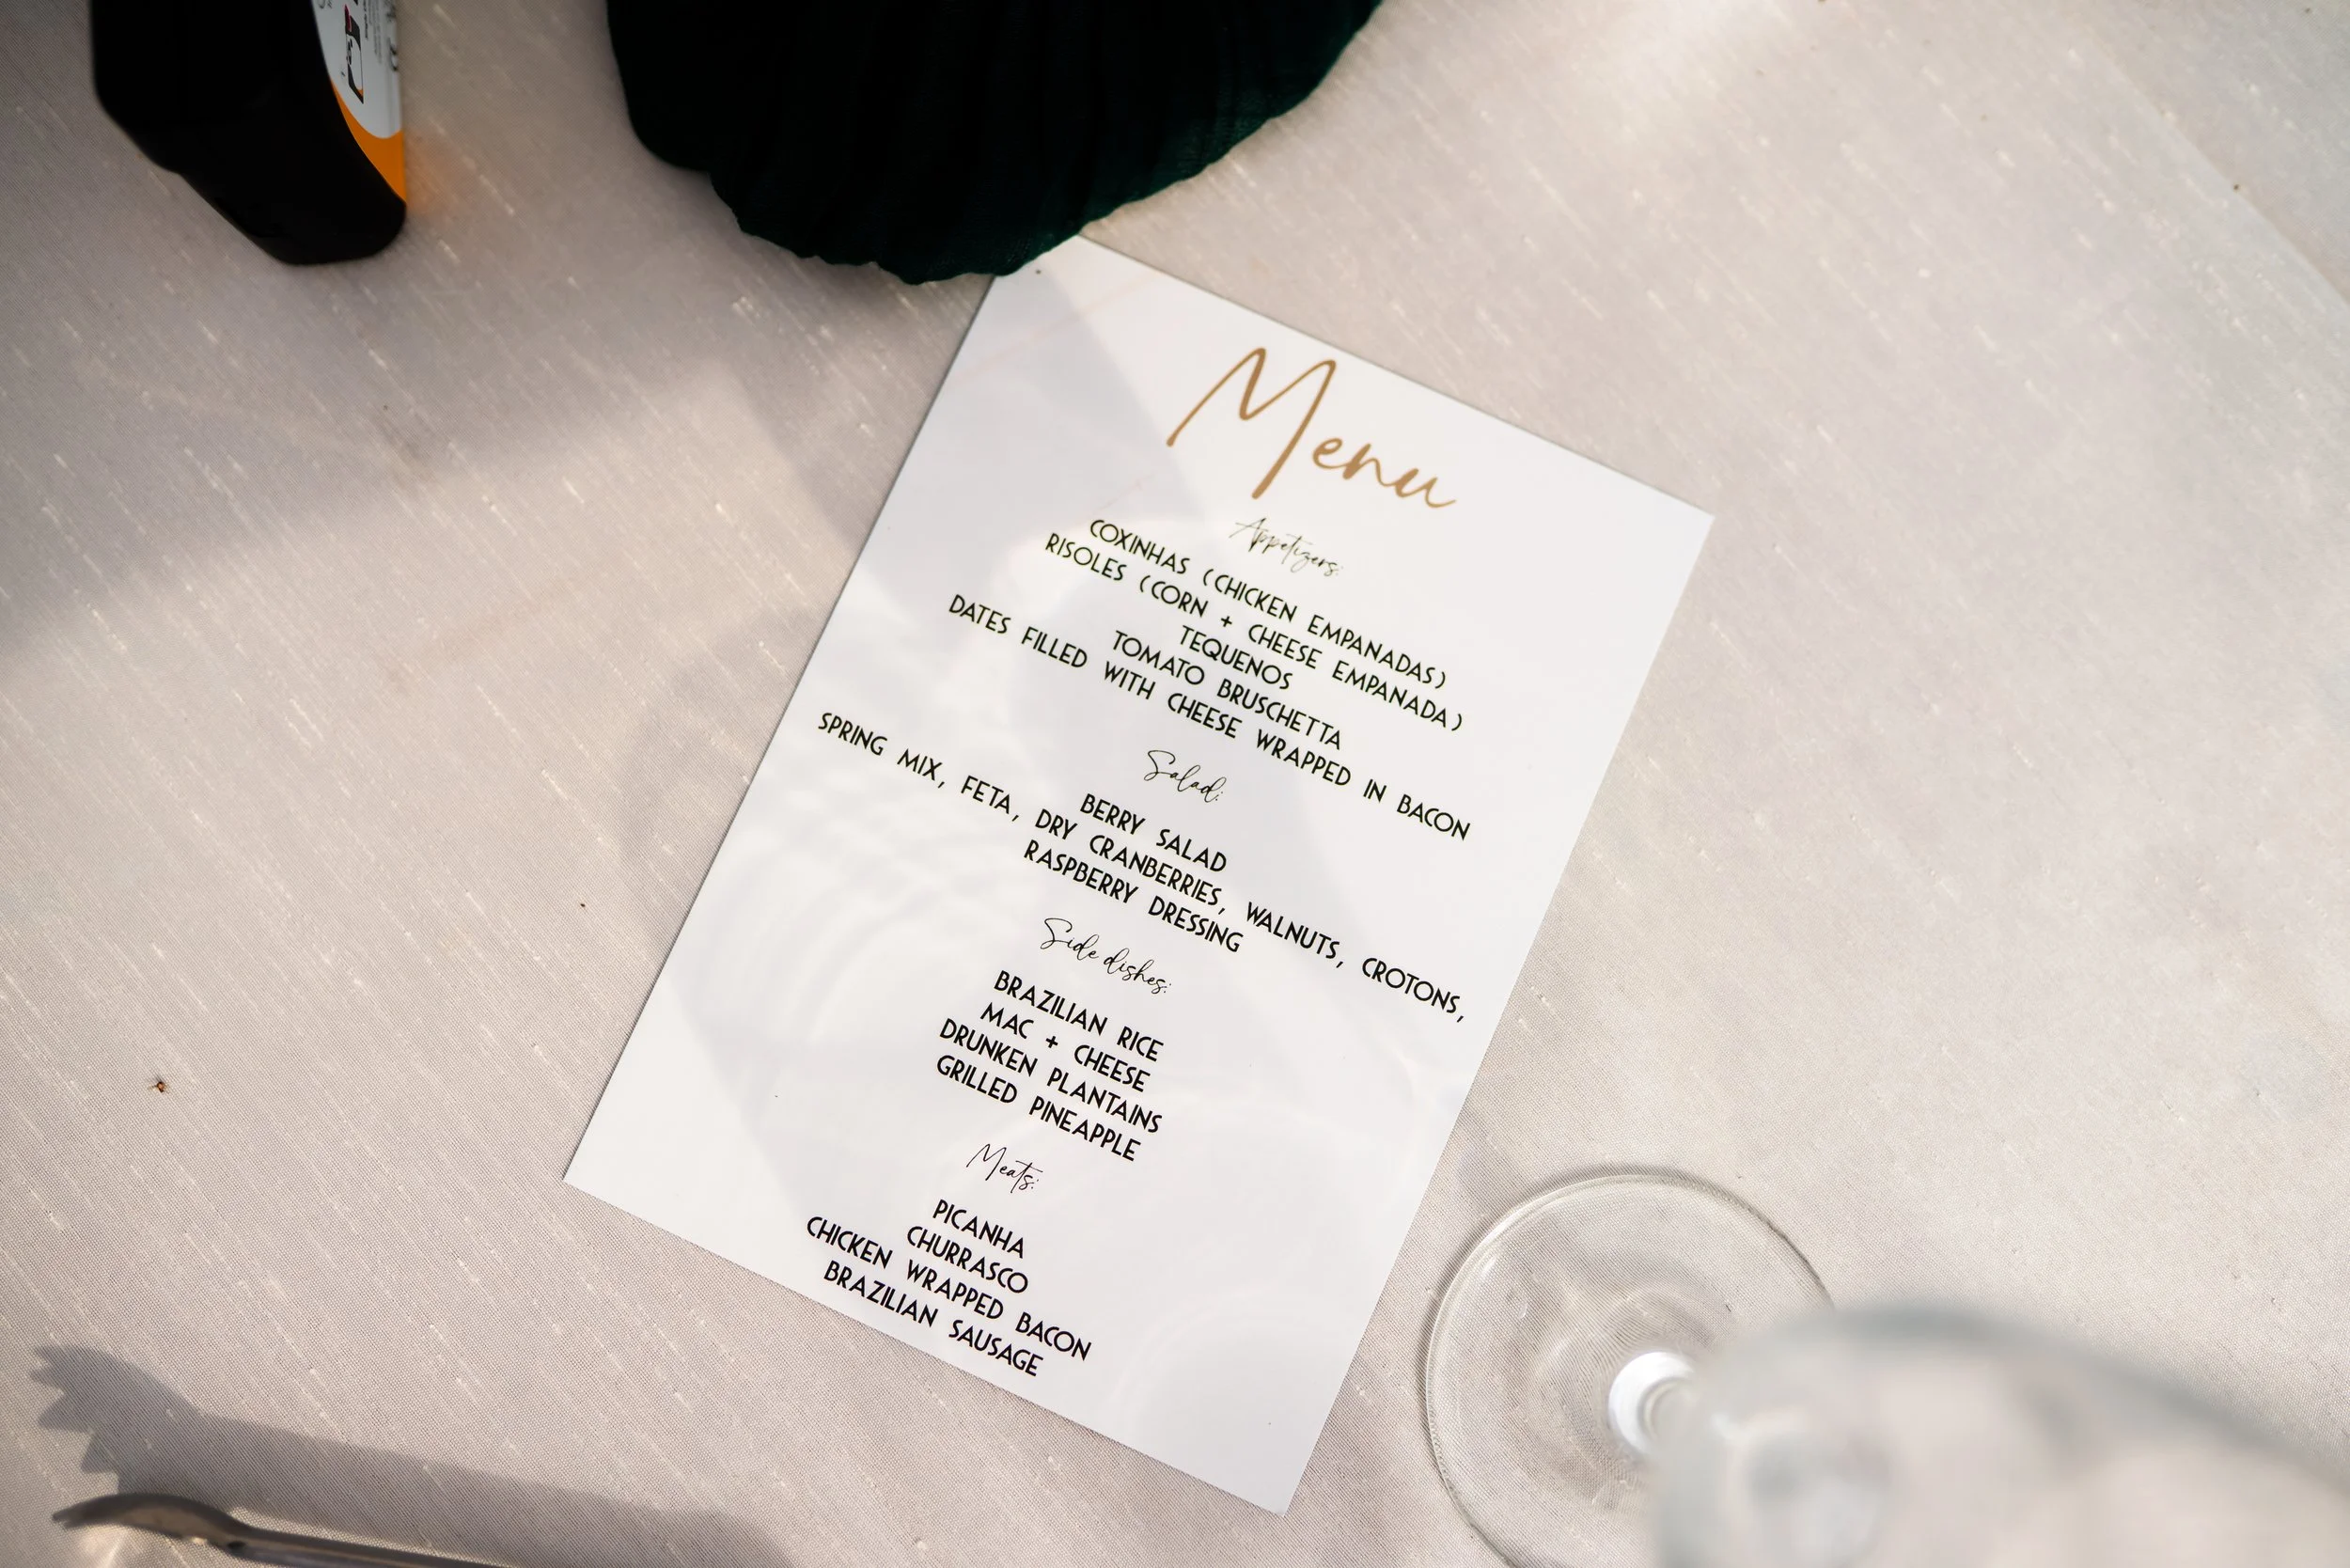 Menu
Appetizers:
COXINHAS (CHICKEN EMPANADAS)
RISOLES (CORN + CHEESE EMPANADA)
TEQUENOS
TOMATO BRUSCHETTA
DATES FILLED WITH CHEESE WRAPPED IN BACON
Salad:
BERRY SALAD
SPRING MIX, FETA, DRY CRANBERRIES, WALNUTS, CROTONS,
RASPBERRY DRESSING
Side dishes:
BRAZILIAN RICE
MAC + CHEESE
DRUNKEN PLANTAINS
GRILLED PINEAPPLE
Meats:
PICANHA
CHURRASCO
CHICKEN WRAPPED BACON
BRAZILIAN SAUSAGE